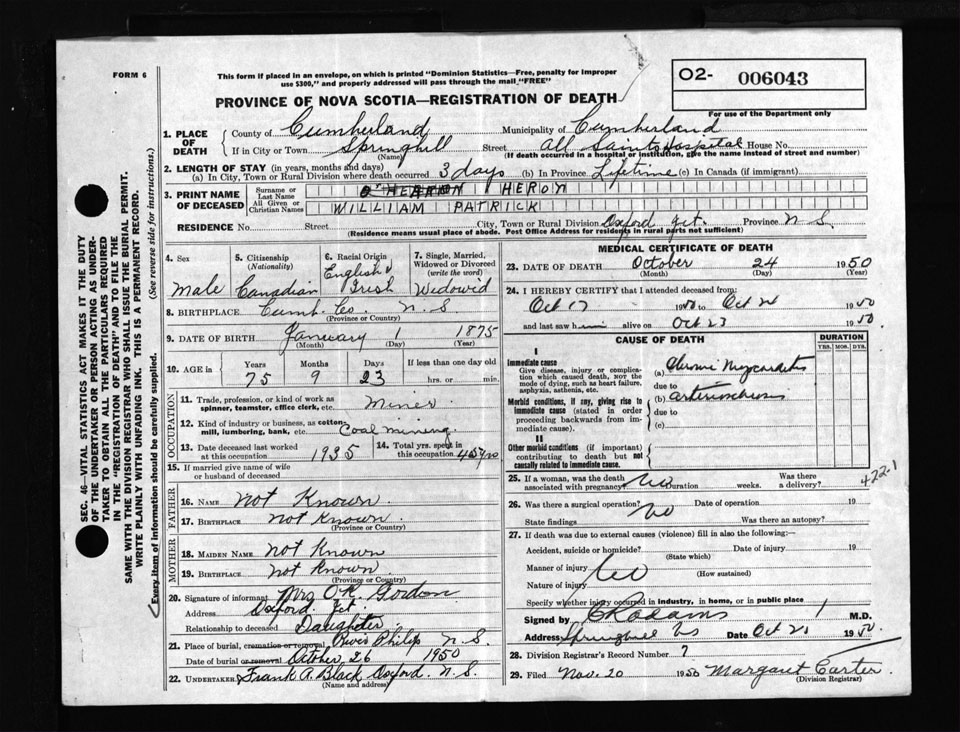 FORM 6
This form if placed in an envelope, on which is printed "Dominion Statistics—Free, penalty for improper
use $300," and properly addressed will pass through the mail "FREE"
O2- 006043
For use of the Department only
PROVINCE OF NOVA SCOTIA—REGISTRATION OF DEATH
1. PLACE OF DEATH
County of Cumberland Municipality of Cumberland
If in City or Town Springhill Street All Saints Hospital House No.
(Name) (If death occurred in a hospital or institution, give the name instead of street and number)
2. LENGTH OF STAY (in years, months and days)
(a) In City, Town or Rural Division where death occurred 3 days (b) In Province Lifetime (c) In Canada (if immigrant)
3. PRINT NAME OF DECEASED
Surname or Last Name O'HEARON HERON
All Given or Christian Names WILLIAM PATRICK
RESIDENCE No. Street City, Town or Rural Division Oxford Jct. Province N S
(Residence means usual place of abode. Post Office Address for residents in rural parts not sufficient)
4. Sex Male
5. Citizenship (Nationality) Canadian
6. Racial Origin English & Irish
7. Single, Married, Widowed or Divorced (write the word) Widowed
8. BIRTHPLACE Cumb. Co. N. S.
(Province or Country)
9. DATE OF BIRTH January 1 1875
(Month) (Day) (Year)
10. AGE in Years Months Days If less than one day old
75 9 23 hrs. or min.
OCCUPATION
11. Trade, profession, or kind of work as
spinner, teamster, office clerk, etc. Miner
12. Kind of industry or business, as cotton
mill, lumbering, bank, etc. Coal mining
13. Date deceased last worked
at this occupation 1935
14. Total yrs. spent in
this occupation 45 yrs
15. If married give name of wife
or husband of deceased
FATHER
16. NAME Not Known
17. BIRTHPLACE Not Known
(Province or Country)
MOTHER
18. MAIDEN NAME Not Known
19. BIRTHPLACE Not Known
(Province or Country)
20. Signature of informant Mrs O.K. Gordon
Address Oxford Jct
Relationship to deceased Daughter
21. Place of burial, cremation or removal River Philip N. S.
Date of burial or removal October 26 1950
22. UNDERTAKER Frank A. Black Oxford N. S.
(Name and address)
MEDICAL CERTIFICATE OF DEATH
23. DATE OF DEATH October 24 1950
(Month) (Day) (Year)
24. I HEREBY CERTIFY that I attended deceased from:
Oct 17 1950 to Oct 24 1950
and last saw him alive on Oct 23 1950
CAUSE OF DEATH DURATION
YRS. MOS. DYS.
I
Immediate cause
Give disease, injury or complication
which caused death, not the
mode of dying, such as heart failure,
asphyxia, asthenia, etc.
(a) Chronic Myocarditis
due to
Morbid conditions, if any, giving rise to
immediate cause (stated in order
proceeding backwards from immediate
cause).
(b) arteriosclerosis
due to
(c)
II
Other morbid conditions (if important)
contributing to death but not
causally related to immediate cause.
422.1
25. If a woman, was the death
associated with pregnancy? No Duration weeks. Was there
a delivery?
26. Was there a surgical operation? No Date of operation 19
State findings Was there an autopsy?
27. If death was due to external causes (violence) fill in also the following:—
Accident, suicide or homicide? Date of injury 19
(State which)
Manner of injury No
(How sustained)
Nature of injury
Specify whether injury occurred in industry, in home, or in public place
Signed by M.D.
Address Springhill NS Date Oct 1950
28. Division Registrar's Record Number 7
29. Filed Nov. 20 1950 Margaret Carter
(Division Registrar)
SEC. 46—VITAL STATISTICS ACT MAKES IT THE DUTY
OF THE UNDERTAKER OR PERSON ACTING AS UNDERTAKER
TO OBTAIN ALL THE PARTICULARS REQUIRED
IN THE "REGISTRATION OF DEATH" AND TO FILE THE
SAME WITH THE DIVISION REGISTRAR WHO SHALL ISSUE THE BURIAL PERMIT.
WRITE PLAINLY WITH UNFADING INK. THIS IS A PERMANENT RECORD.
Every item of information should be carefully supplied. (See reverse side for instructions.)